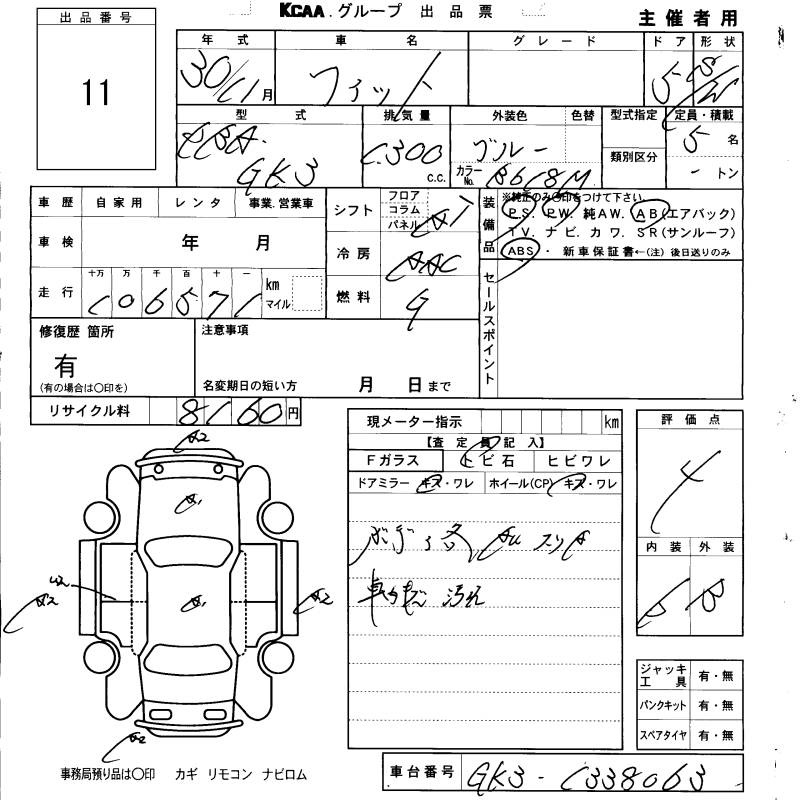 KCAA.グループ 出品票
主催者用
出品番号
11
年式 車名 グレード ドア 形状
30/11月 フィット 5 S/W
型式 排気量 外装色 色替 型式指定 定員・積載
DBA-GK3 1300c.c. ブルー 5名
類別区分 -トン
カラーNo. B618M
車歴 自家用 レンタ 事業.営業車
シフト フロア コラム パネル AT
装備品 ※純正のみ〇印をつけて下さい
P.S. P.W. 純AW. AB(エアバック)
T.V. ナビ.カワ. SR(サンルーフ)
ABS・ 新車保証書←(注) 後日送りのみ
車検 年 月
冷房 AAC
走行 十万 万 千 百 十 一 km マイル
106571
燃料 G
セールスポイント
修復歴 箇所
有
(有の場合は〇印を)
注意事項
名変期日の短い方 月 日まで
リサイクル料 8160円
現メーター指示 km
【査定員記入】
Fガラス トビ石 ヒビワレ
ドアミラー キズ・ワレ ホイール(CP) キズ・ワレ
ボディ各 AU スリA
車内 汚れ
評価点
4
内装 外装
B B
A2
A1
U2
A2
A1
A2
A2
ジャッキ工具 有・無
パンクキット 有・無
スペアタイヤ 有・無
事務局預り品は〇印 カギ リモコン ナビロム
車台番号 GK3-1338063